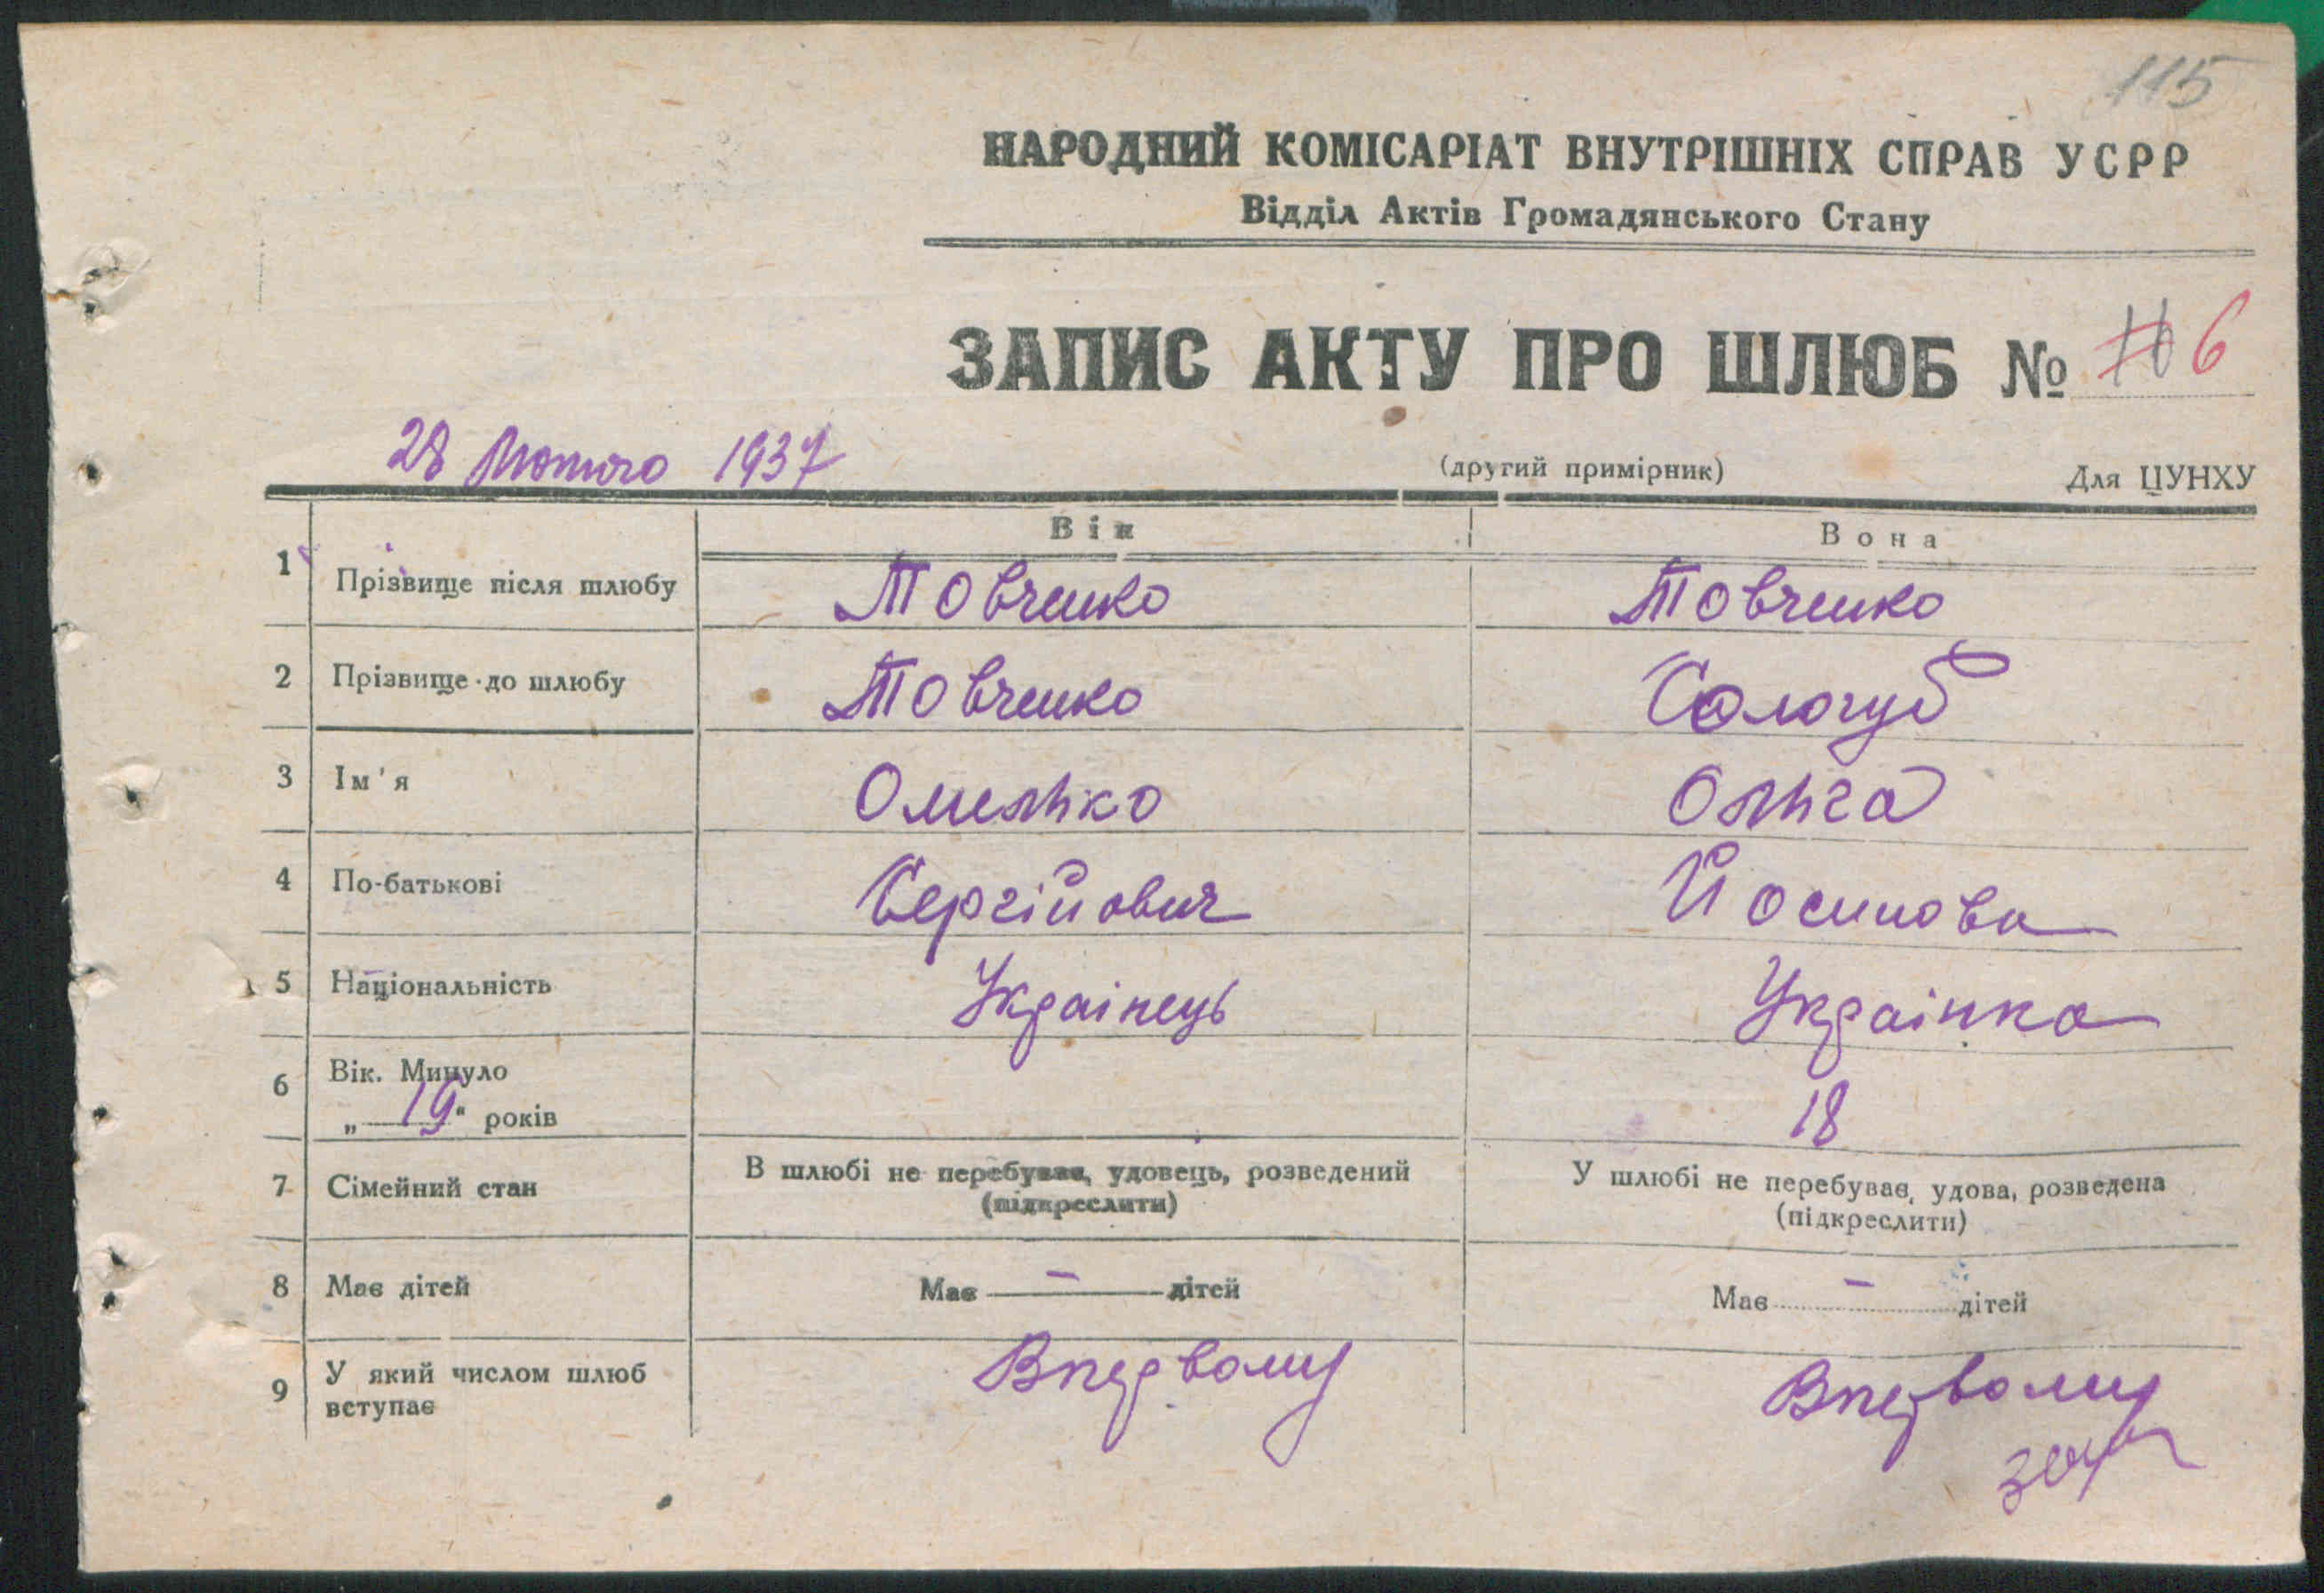 115
НАРОДНИЙ КОМІСАРІАТ ВНУТРІШНІХ СПРАВ УСРР
Відділ Актів Громадянського Стану
ЗАПИС АКТУ ПРО ШЛЮБ № 6
28 Лютого 1937
(другий примірник) Для ЦУНХУ
Він Вона
1 Прізвище після шлюбу Товченко Товченко
2 Прізвище до шлюбу Товченко Сологуб
3 Ім'я Омелько Ольга
4 По-батькові Сергійович Йосипова
5 Національність Українець Українка
6 Вік. Минуло
„ 19 " років 18
7 Сімейний стан В шлюбі не перебував, удовець, розведений У шлюбі не перебував, удова, розведена
(підкреслити) (підкреслити)
8 Має дітей Має — дітей Має — дітей
9 У який числом шлюб Впервому Впервому
вступає